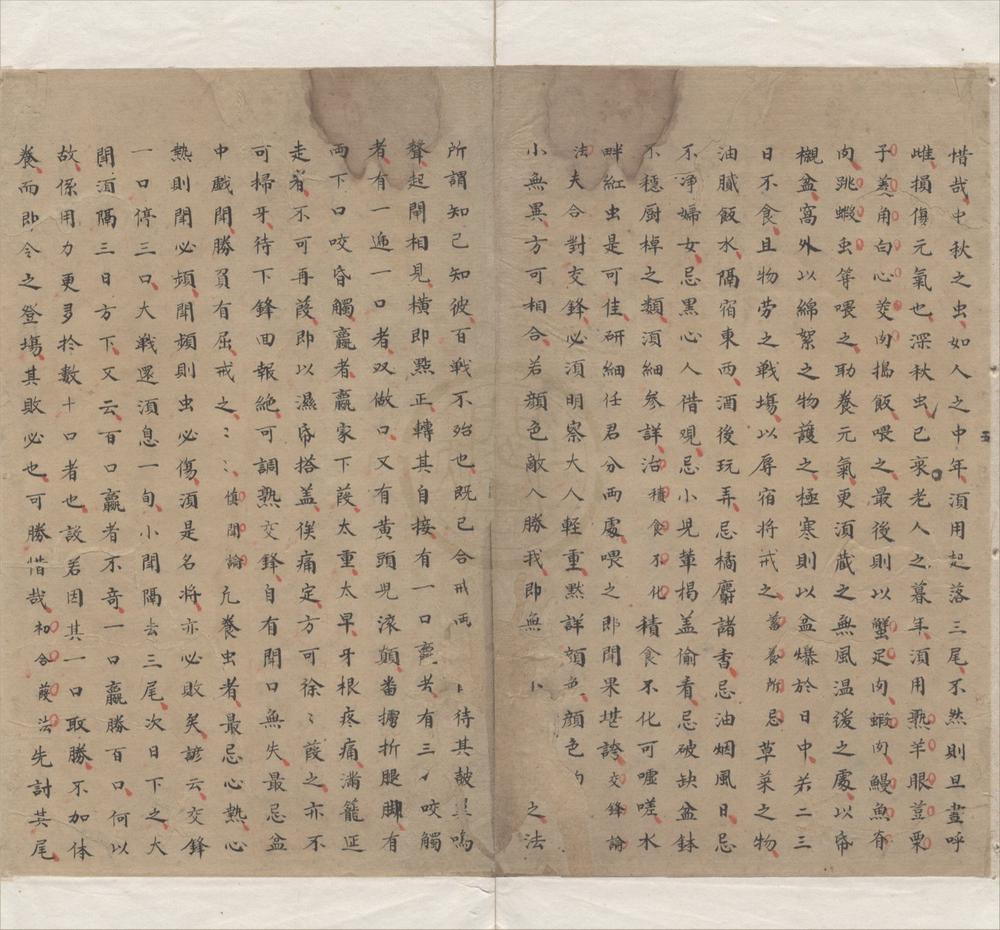 惜哉中秋之虫如人之中年湏用起落三尾不然則旦晝呼
雌損傷元氣也深秋虫已衰老人之暮年湏用熟羊眼荳栗
子蒸角白心茭肉搗飯喂之最後則以蟹足肉蝦肉鰻魚脊
肉跳蝦虫等喂之助養元氣更湏蔵之無風温煖之處以帋
櫬盆窩外以綿絮之物護之極寒則以盆爆於日中若二三
日不食且物劳之戰塲以辱宿将戒之蓄養所忌草菜之物
油膩飯水隔宿東西酒後玩弄忌橘麝諸香忌油烟風日忌
不淨婦女忌黑心人借覌忌小兒輩揭盖偷看忌破缺盆鉢
不穏厨棹之類湏細參詳治積食不化積食不化可嘘嗟水
畔紅虫是可佳研細任君分两處喂之即開果堪誇交鋒論
法夫合對交鋒必湏明察大人軽重黙詳頭色顔色之法
小無異方可相合若顔色敵人勝我即無小
所謂知己知彼百戰不殆也既已合戒两待其皷異鳴
聲起閘相見横即點正轉其自接有一口贏者有三咬觸
者有一逓一口者双做口又有黄頭兒滚顛番擂折腿脚有
两下口咬昏觸贏者贏家下葭太重太早牙根疼痛滿籠逛
走者不可再葭即以濕帋搭盖俟痛定方可徐〻葭之亦不
可掃牙待下鋒回報絶可調熟交鋒自有開口無失最忌盆
中戯閗勝負有屈戒之〻〻慎閗論凢養虫者最忌心熱心
熱則閗必頻閗頻則虫必傷湏是名将亦必敗矣諺云交鋒
一口停三口大戰還湏息一旬小閗隔去三尾次日下之大
閗湏隔三日方下又云百口贏者不竒一口贏勝百口何以
故係用力更多扵數十口者也設若因其一口取勝不加体
養而即令之登塲其敗必也可勝惜哉初合葭法先討其尾